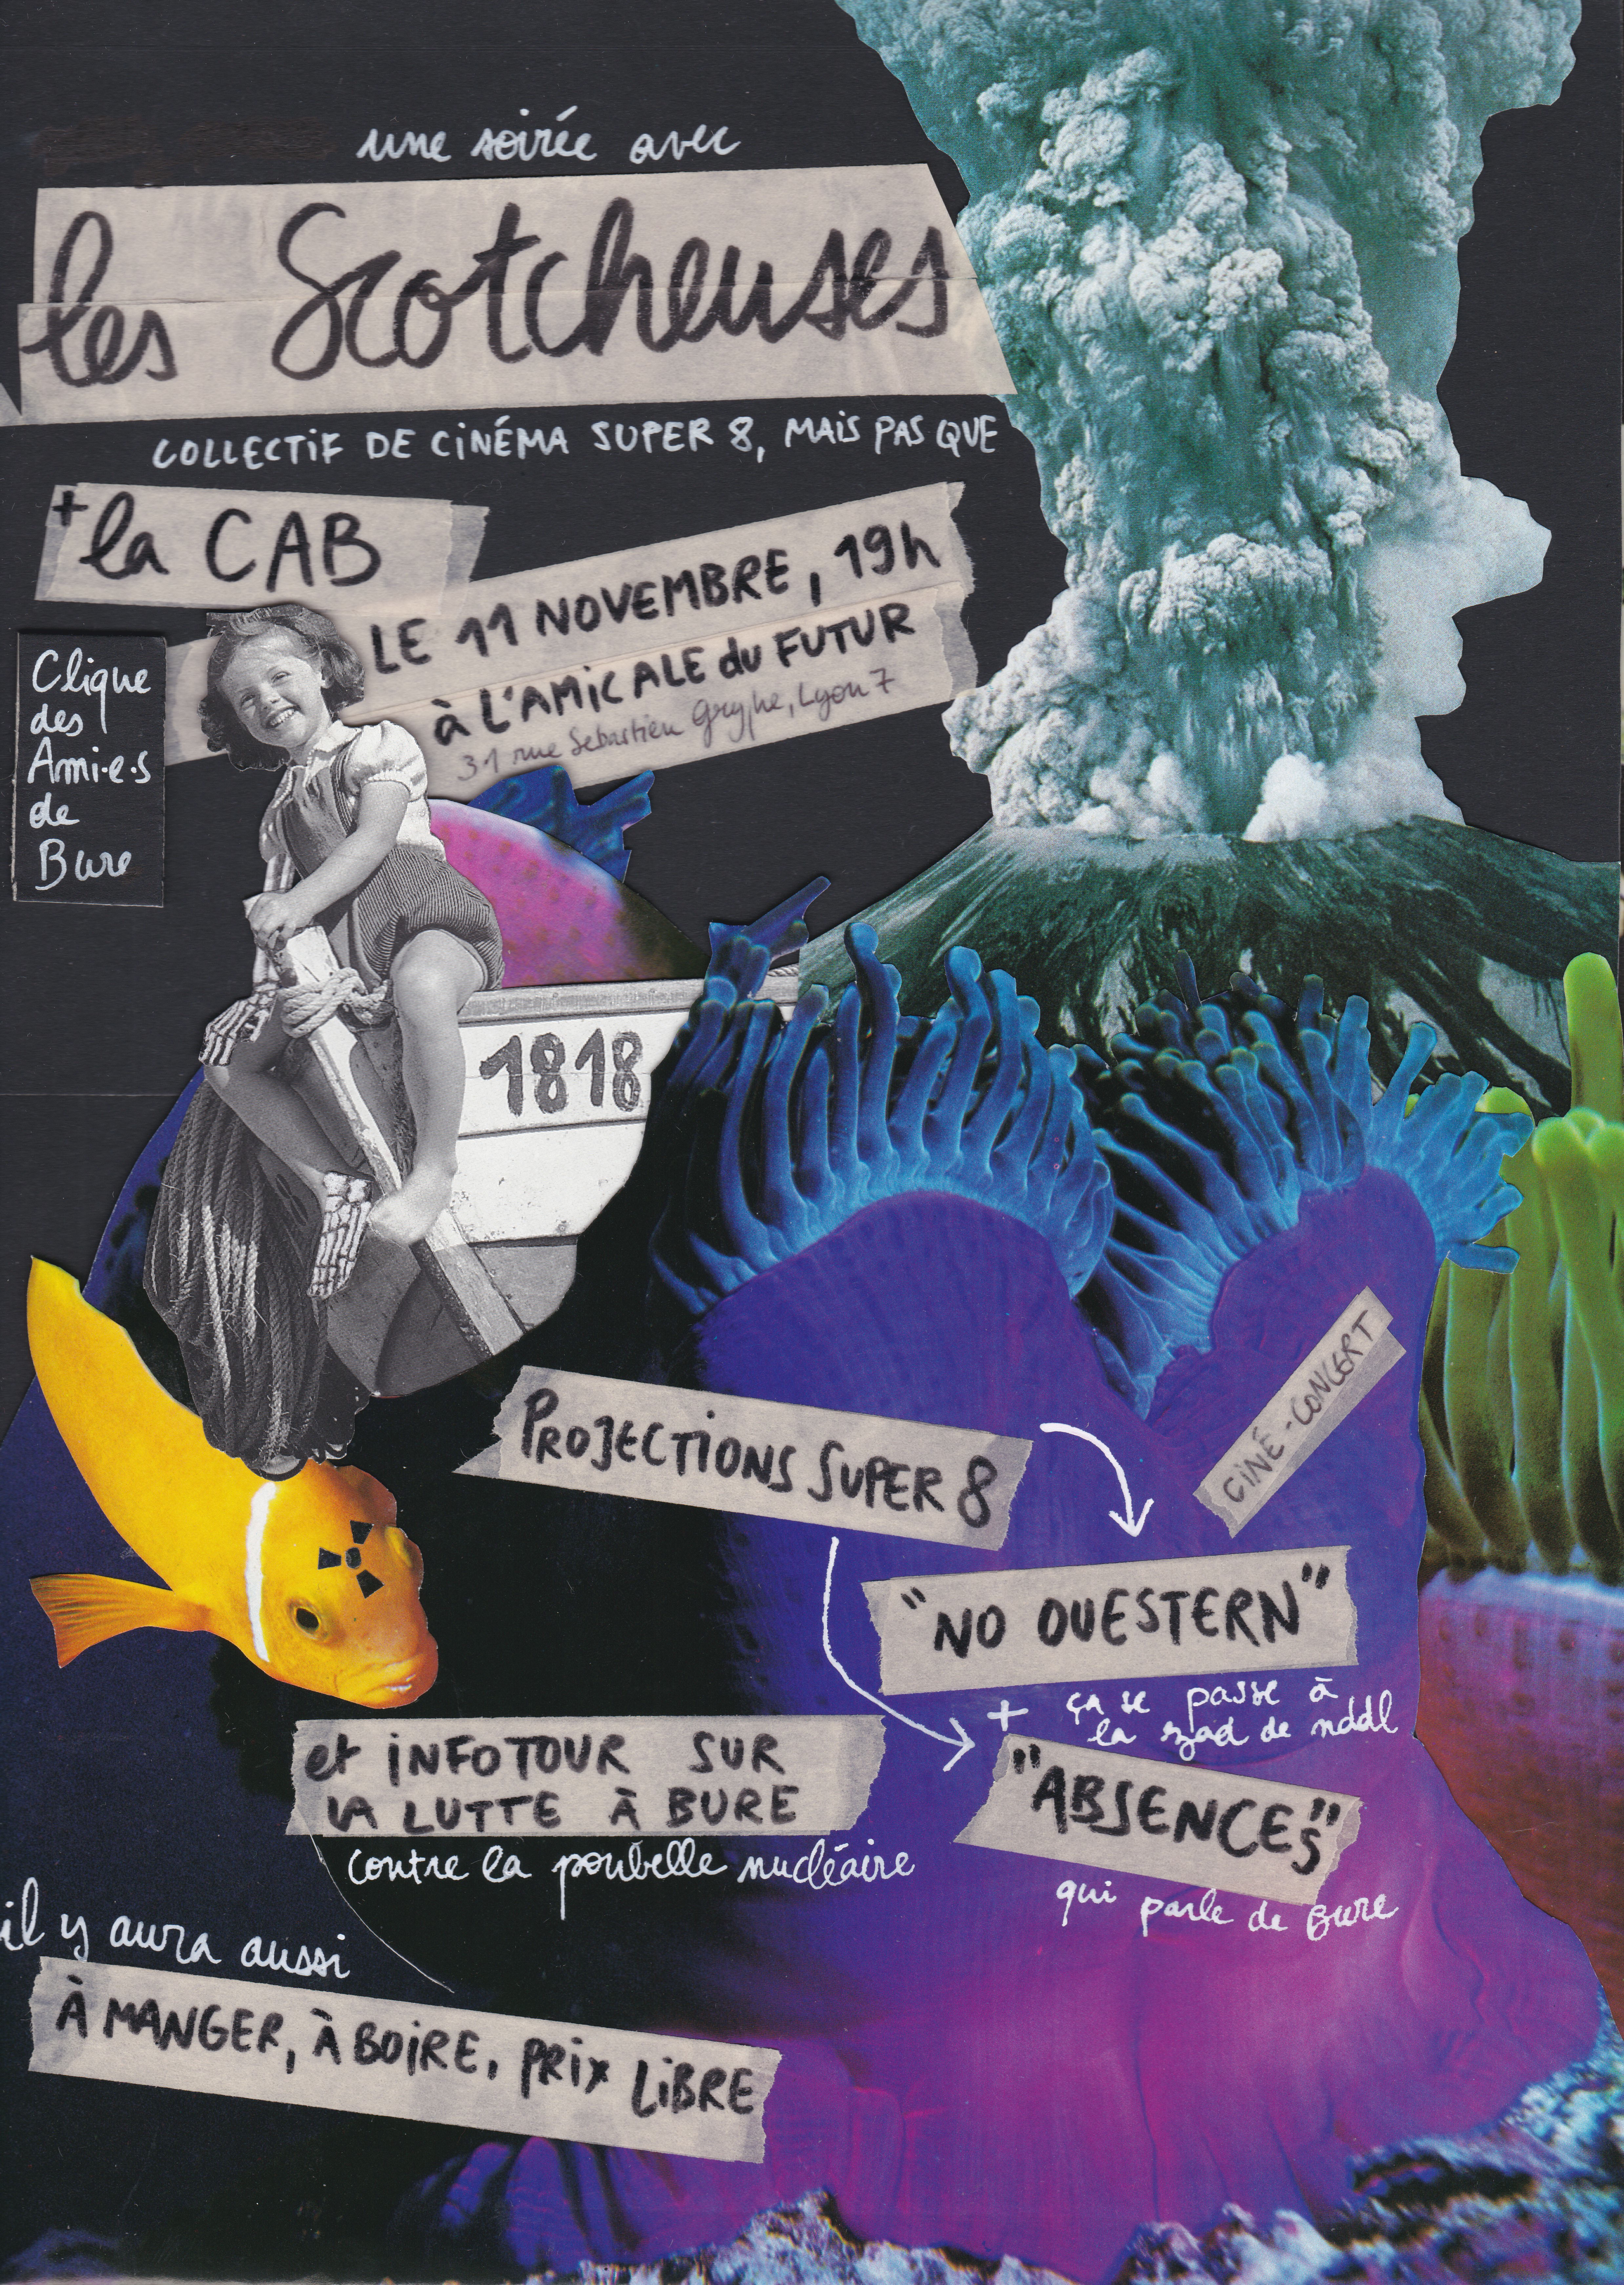 une soirée avec
les Scotcheuses
COLLECTIF DE CINÉMA SUPER 8, MAIS PAS QUE
+ la CAB
LE 11 NOVEMBRE, 19h
à L'AMICALE du FUTUR
31 rue Sebastien Gryphe, Lyon 7
Clique
des
Ami·e·s
de
Bure
1818
PROJECTIONS SUPER 8
CINÉ-CONCERT
"NO OUESTERN"
+ ça se passe à
la zad de nddl
et INFOTOUR SUR
LA LUTTE À BURE
contre la poubelle nucléaire
"ABSENCES"
qui parle de Bure
il y aura aussi
À MANGER, À BOIRE, PRIX LIBRE